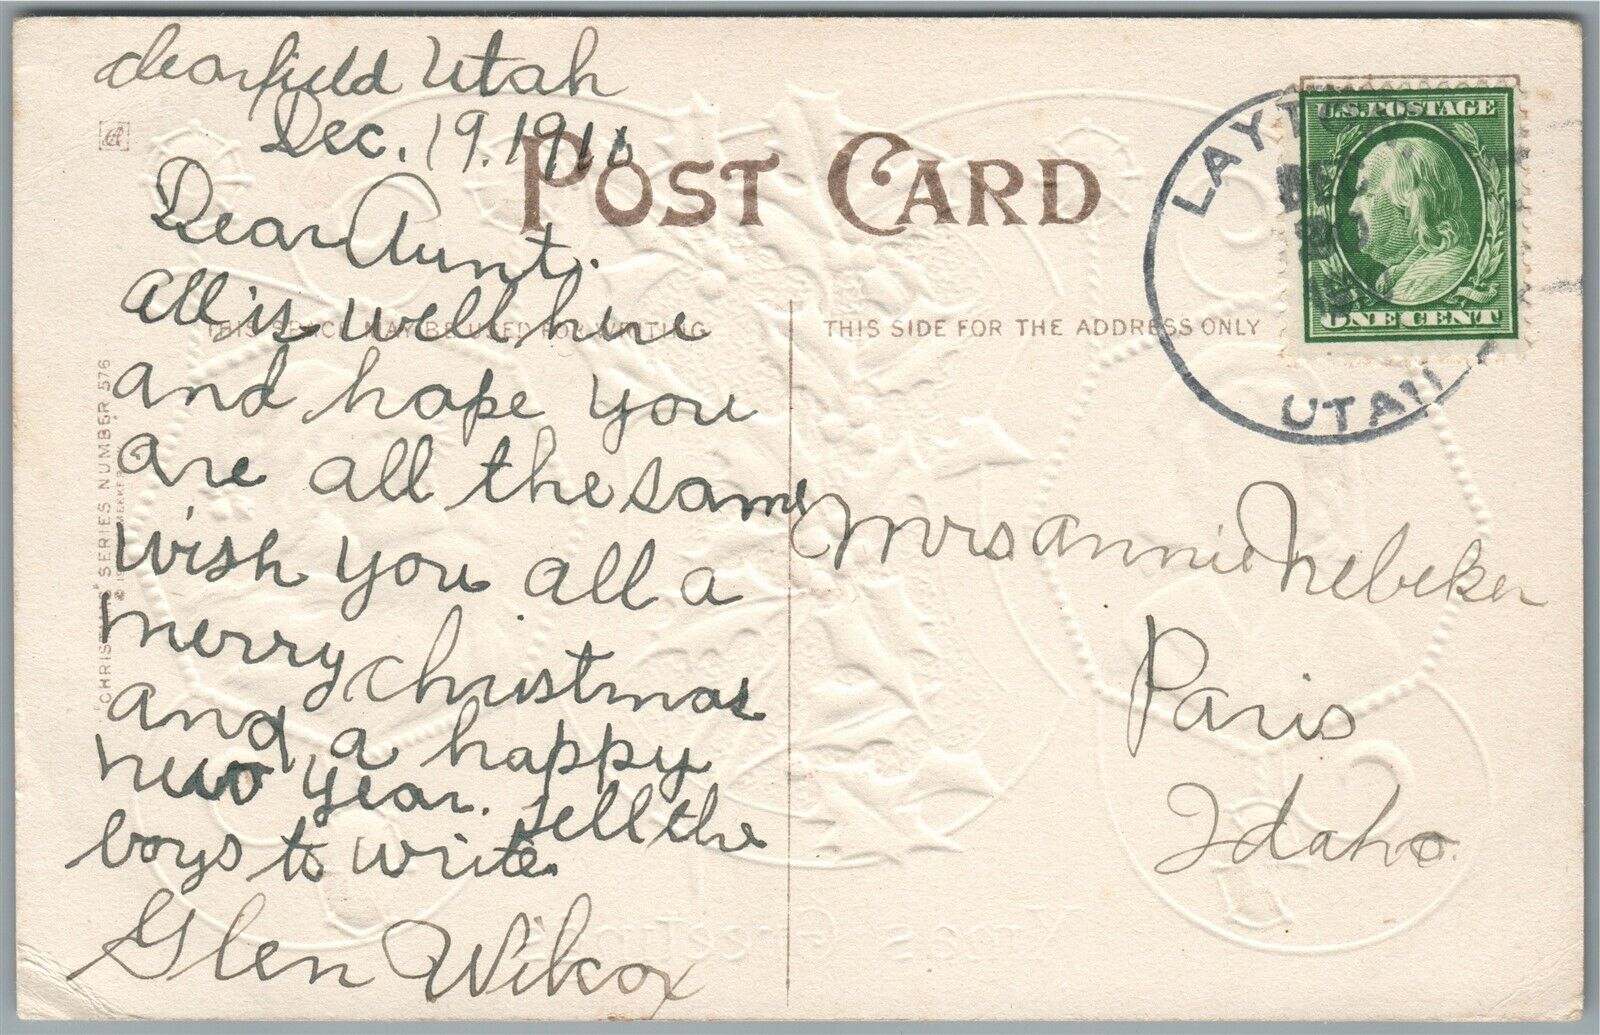 Clearfield Utah
Dec. 19. 1911
POST CARD
Dear Aunt.
All is well here
THIS SPACE MAY BE USED FOR WRITING
and hope you
are all the same
wish you all a
merry christmas
and a happy
new year. tell the
boys to write.
Glen Wilcox
THIS SIDE FOR THE ADDRESS ONLY
Mrs annie Nebeker
Paris
Idaho.
U.S. POSTAGE
ONE CENT
LAYTON
DEC
20
UTAH
"CHRISTMAS" SERIES NUMBER 576